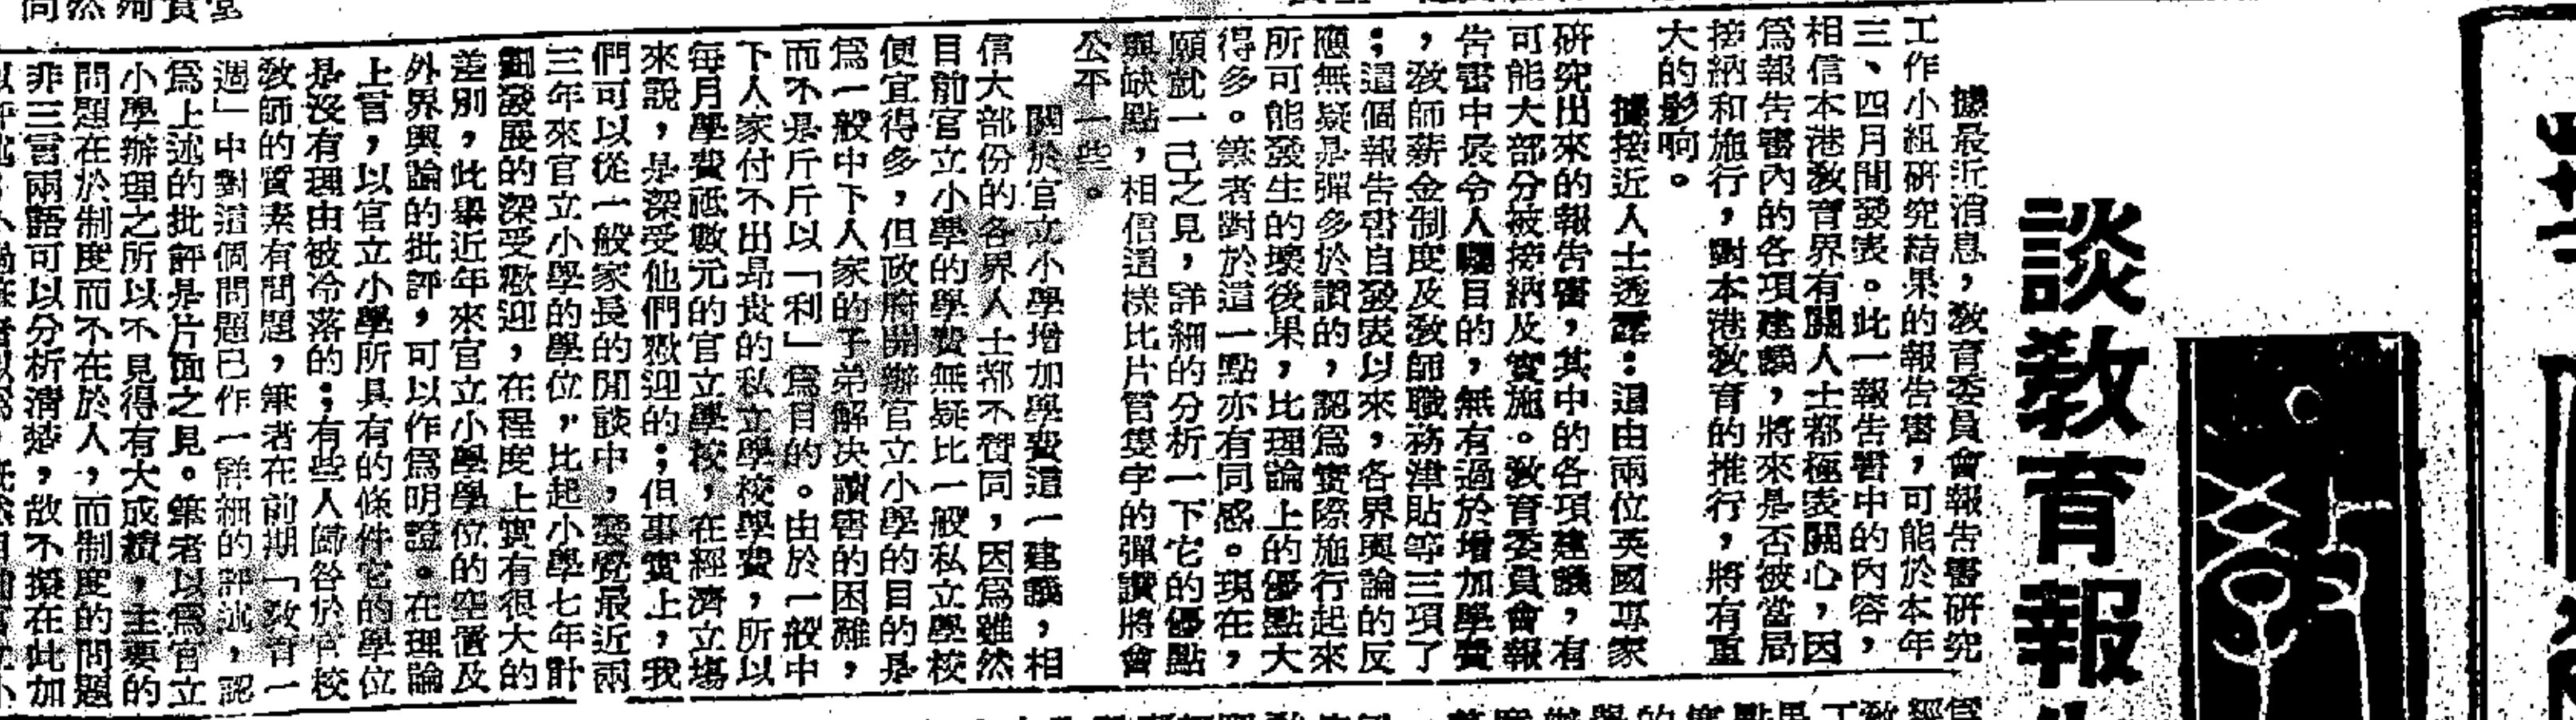 談教育報
據最近消息，教育委員會報告書研究
工作小組研究結果的報告書，可能於本年
三、四月間發表。此一報告書中的內容，
相信本港教育界有關人士都極表關心，因
爲報告書內的各項建議，將來是否被當局
接納和施行，對本港教育的推行，將有重
大的影响。
據接近人士透露：這由兩位英國專家
研究出來的報告書，其中的各項建議，有
可能大部分被接納及實施。教育委員會報
告書中最令人矚目的，無有過於增加學費
，教師薪金制度及教師職務津貼等三項了
；這個報告書自發表以來，各界輿論的反
應無疑是彈多於讚的，認爲實際施行起來
所可能發生的壞後果，比理論上的優點大
得多。筆者對於這一點亦有同感。現在，
願就一己之見，詳細的分析一下它的優點
與缺點，相信這樣比片言隻字的彈讚將會
公平一些。
關於官立小學增加學費這一建議，相
信大部份的各界人士都不贊同，因爲雖然
目前官立小學的學費無疑比一般私立學校
便宜得多，但政府開辦官立小學的目的是
爲一般中下人家的子弟解決讀書的困難，
而不是斤斤以「利」爲目的。由於一般中
下人家付不出昂貴的私立學校學費，所以
每月學費祗數元的官立學校，在經濟立塲
來說，是深受他們歡迎的；但事實上，我
們可以從一般家長的閒談中，發覺最近兩
三年來官立小學的學位，比起小學七年計
劃發展的深受歡迎，在程度上實有很大的
差別，此舉近年來官立小學學位的空置及
外界輿論的批評，可以作爲明證。在理論
上言，以官立小學所具有的條件它的學位
是沒有理由被冷落的；有些人歸咎於官校
教師的質素有問題，筆者在前期「教育一
週」中對這個問題已作一詳細的評述，認
爲上述的批評是片面之見。筆者以爲官立
小學辦理之所以不見得有大成績，主要的
問題在於制度而不在於人，而制度的問題
非三言兩語可以分析清楚，故不擬在此加